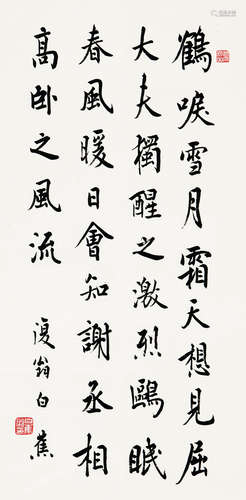 鶴唳雪月霜天想見屈
大夫獨醒之激烈鷗眠
春風暖日會知謝丞相
高卧之風流
復翁白蕉